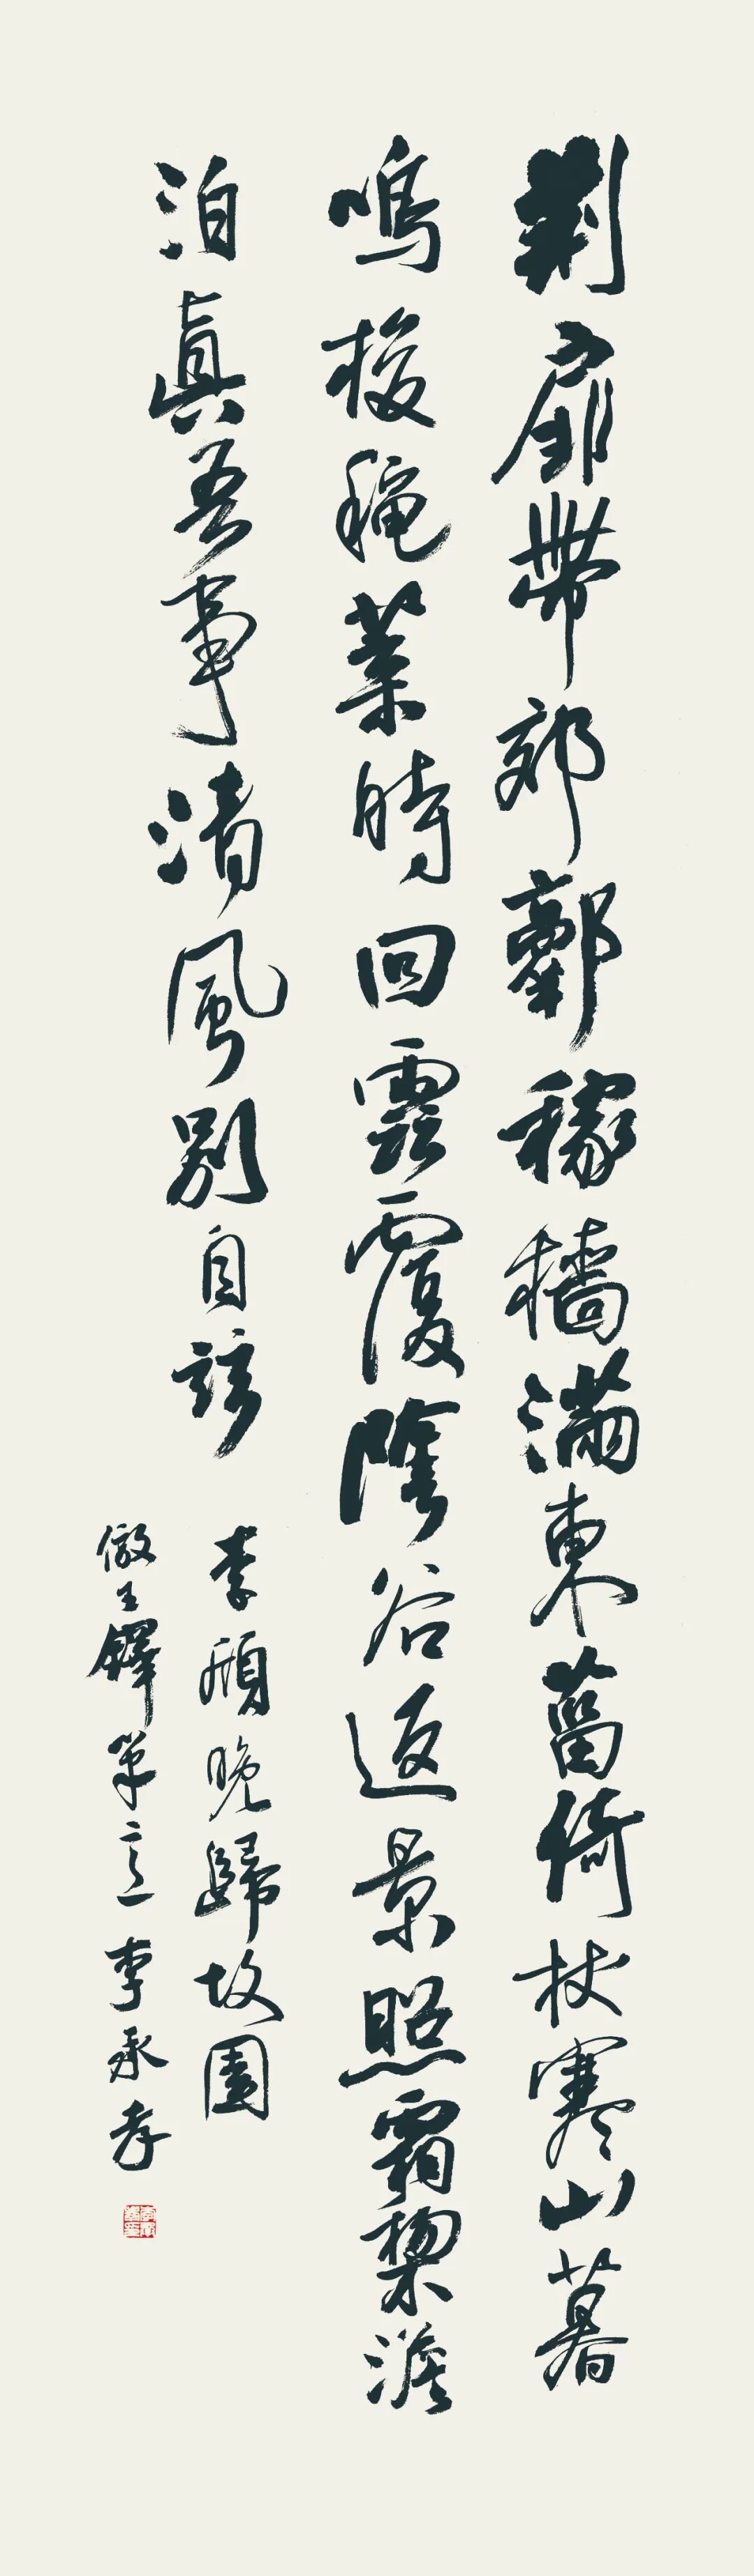 荊扉帶郊郭稼穡滿東菑倚杖寒山暮
鳴梭龝葉時回雲覆陰谷返景照霜棃澹
泊眞吾事清風別自玆
李頎晚歸故園
倣王鐸筆意李承孝